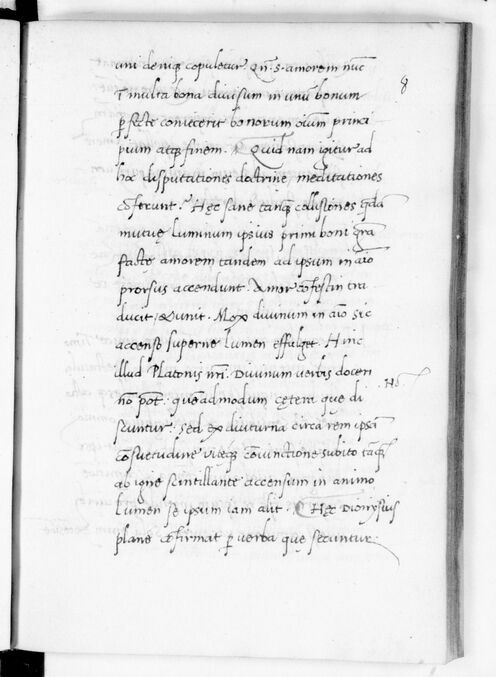 uni deniq; copuletur. Qñ .s. amorem nũc
ĩ multa bona diuisum in unũ bonum
ꝑfecte conuecerit bonorum oĩum princi
pium atq; finem. Quid nam igitur ad
hoc disputationes doctrinę meditationes
cõferunt? Hęc sane tanq̃ collisiones q̃dã
mutuę luminum ipsius primi boni grã
factę amorem tandem ad ipsum in aĩo
prorsus accendunt. Amor cõfestin tra
ducit, & unit. Mox diuinum in aĩo sic
accenso superne lumen effulget. Hinc
illud Platonis nr̃i. Diuinum uerbis doceri
nõ põt: quẽadmodum cętera quę di
scuntur. Sed ex diuturna circa rem ipsã
cõsuetudine uiteq; cõiunctione subito tãq̃
ab igne scintillante accensum in animo
lumen se ipsum iam alit. Hęc Dionysius
plane cõfirmat ꝑ uerba quę secuntur.
8
No.